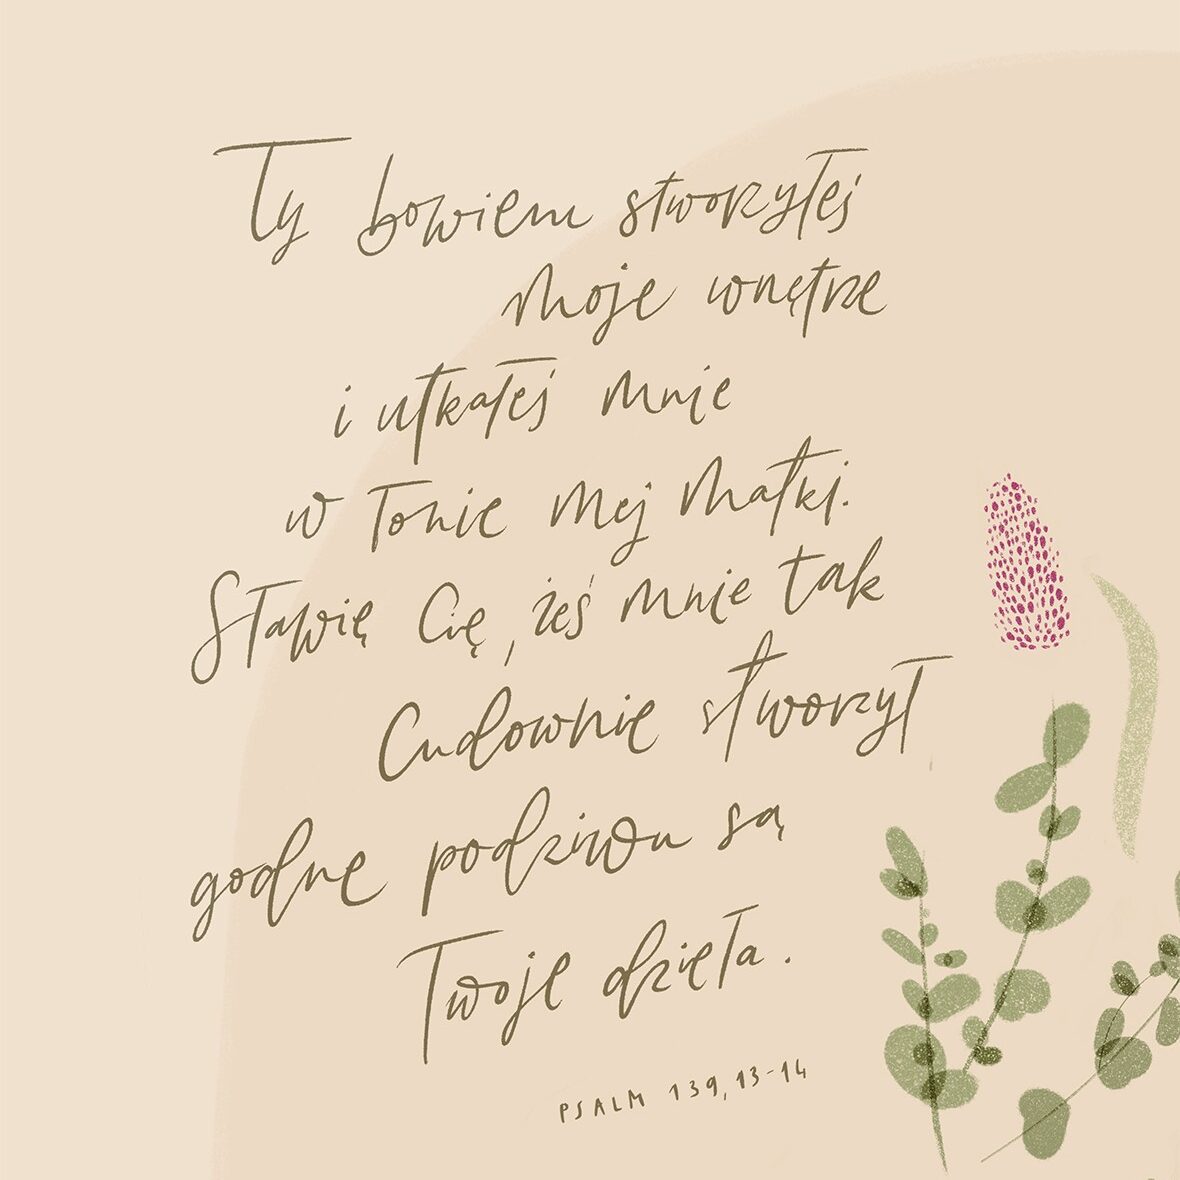 Ty bowiem stworzyłeś
moje wnętrze
i utkałeś mnie
w łonie mej matki.
Sławię Cię, żeś mnie tak
Cudownie stworzył
godne podziwu są
Twoje dzieła.
PSALM 139, 13-14